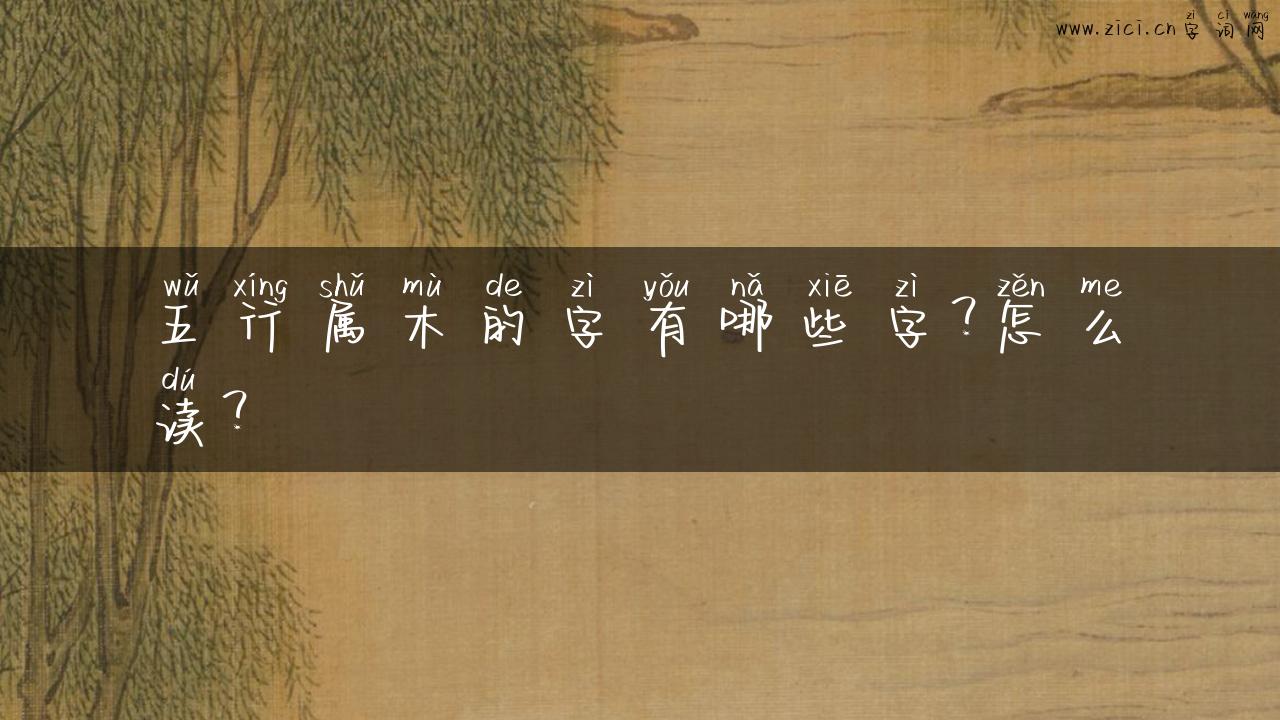 zì cí wǎng
www.zici.cn字词网
wǔ xíng shǔ mù de zì yǒu nǎ xiē zì zěn me
五行属木的字有哪些字?怎么
dú
读?